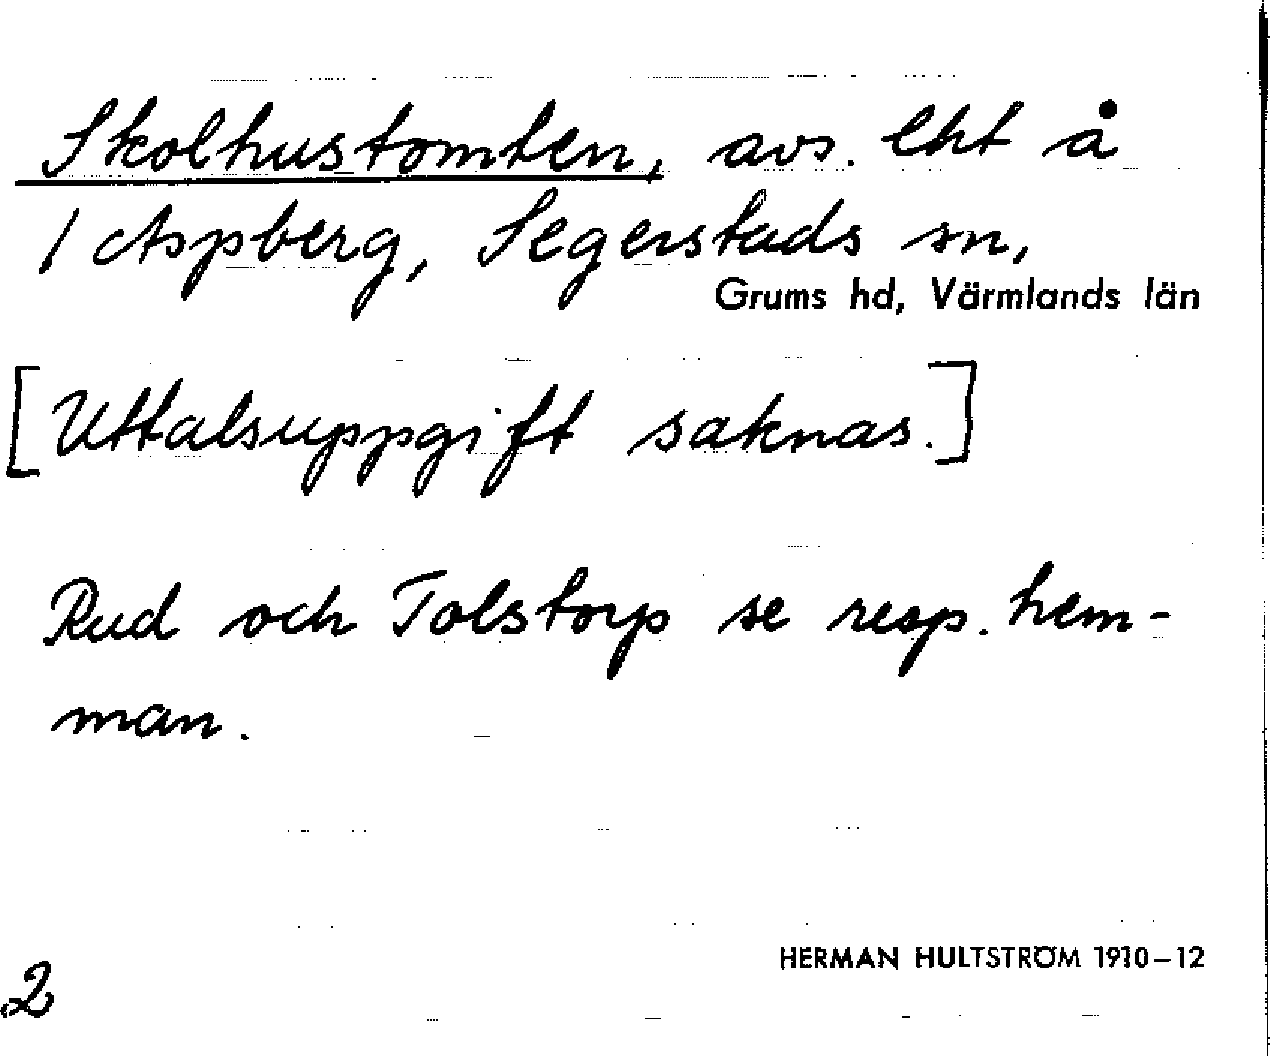 Skolhustomten, avs. lht å
1 Aspberg, Segerstads sn,
Grums hd, Värmlands län
[Uttalsuppgift saknas.]
Rud och Tolstorp se resp. hem-
man.
HERMAN HULTSTRÖM 1910–12
2